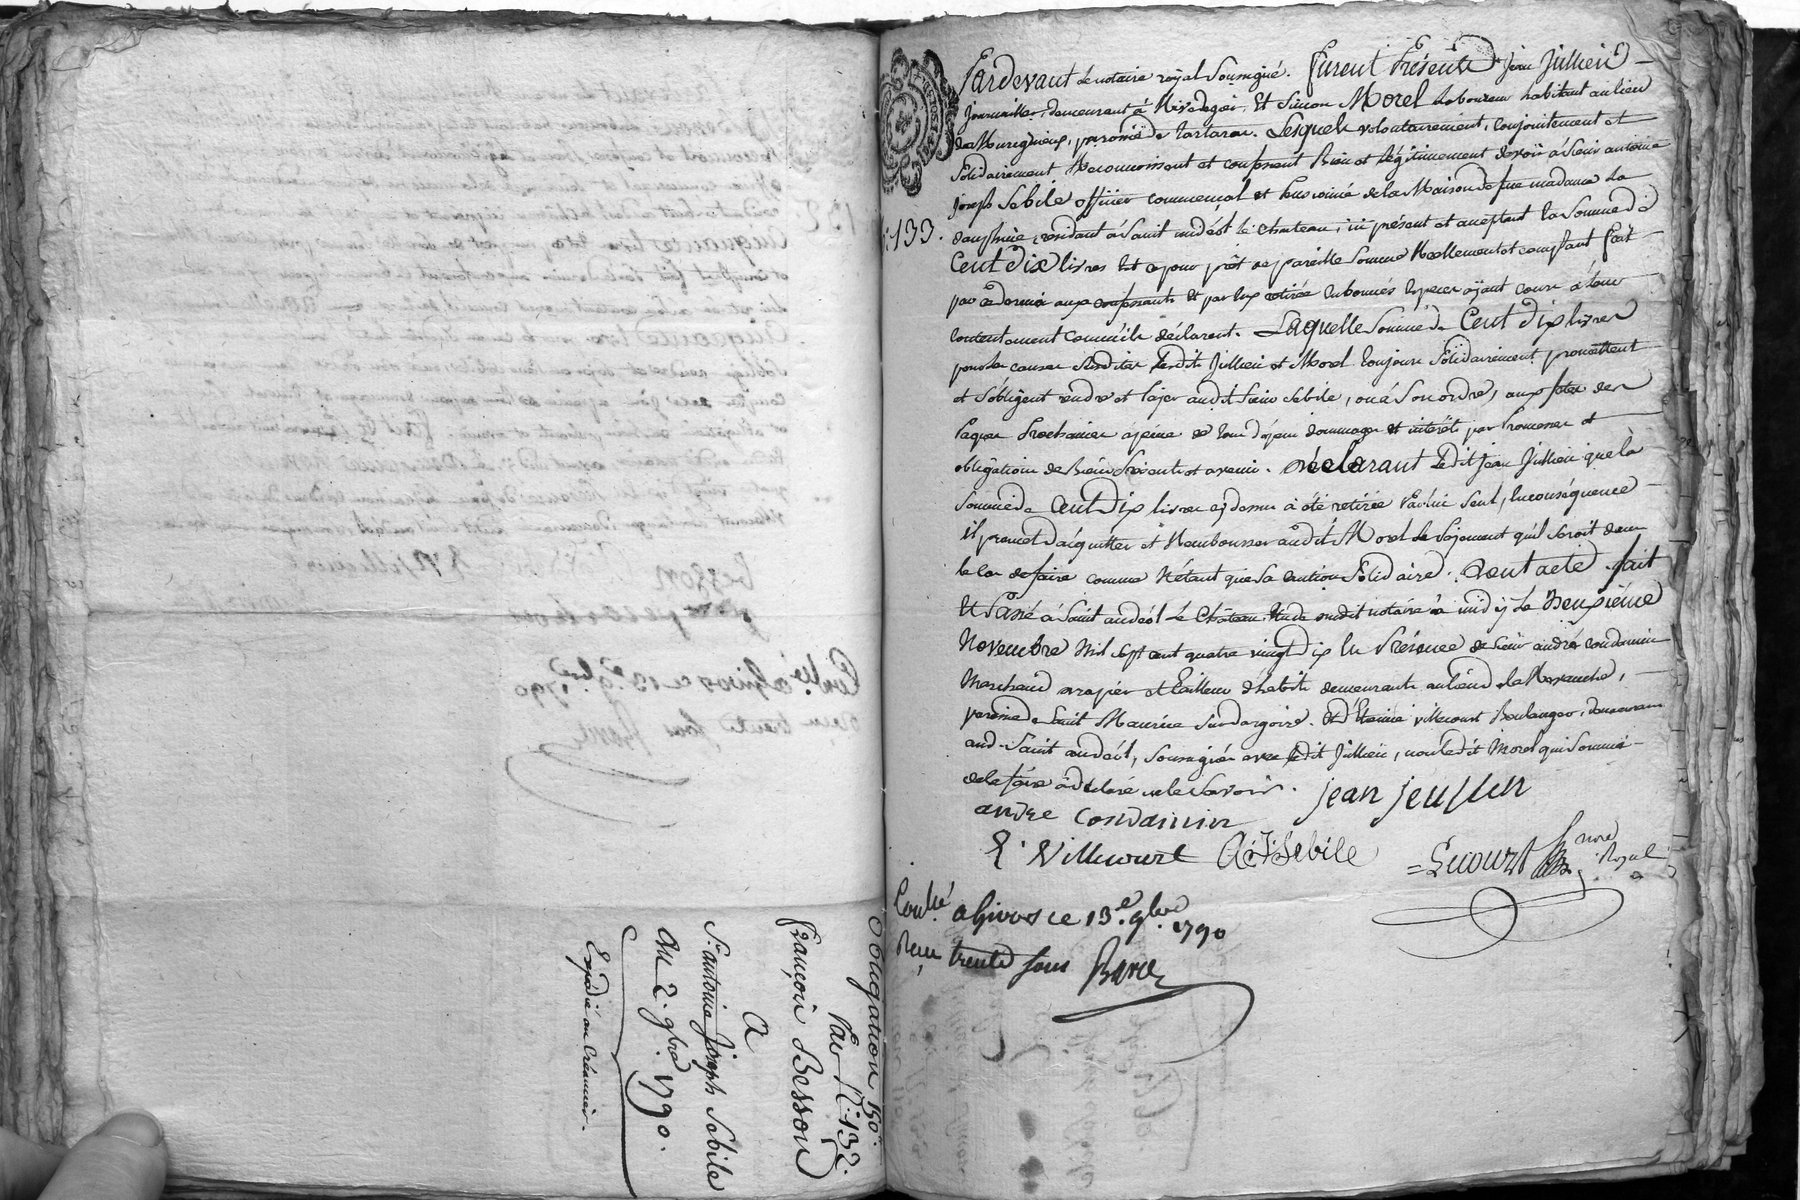 Obligation 150#.
Par N.° 132.
François Besson
A
S.r antoine Joseph Sebile
Au 2. 9bre 1790.
Expédié au Créancier.
Pardevant le notaire royal Soussigné. Furent Présents jean Jullien
Journaillier, demeurant à Rivedegier, Et Simon Morel Laboureur habitant au lieu
de Murigneux, paroisse de tartaras. Lesquels volontairement, conjointement et
Solidairement Reconnoissent et confessent Bien et légitimement devoir à Sieur antoine
joseph Sebile officier commensal et pensionné de la Maison de feue madame La
dauphine, residant à Saint andéol le Chateau, ici présent et acceptant la Somme de
133.
Cent Dix livres Et ce pour prêt de pareille Somme Reellement et comptant fait
par ce dernier aux confessants Et par Eux retirée En bonnes Especes ayant cours à leur
Contentement comme ils déclarent. Laquelle Somme de Cent Dix livres
pour les causes Susdites Lesdits Jullien et Morel toujours Solidairement promettent
et S'obligent rendre et païer audit Sieur Sebile, ou à Son ordre, aux fetes de
Paques Prochaines à peine de tous dépens dommages et intérêts par Promesses et
obligations de Biens Présents et avenir. Déclarant Ledit jean Jullien que la
Somme de Cent Dix livres cy dessus à été retirée Par lui Seul, En conséquence
il promet d'acquitter et Rembourser audit Morel Le Païement qu'il Seroit dans
le Cas de faire comme N'étant que Sa caution Solidaire. Dont acte fait
Et Passé à Saint andéol Le Château, Etude dudit notaire à midy Le Neuvième
Novembre Mil Sept cent quatre vingt Dix En Présence de Sieur andré Condamin
Marchand drapier et Tailleur d'habits demeurants au lieu de la Revanche,
paroisse de Saint Maurice Surdargoire. Et d'Etienne Villecourt Boulanger, demeurant
aud. Saint andéol, Soussignés avec Ledit Jullien, non Ledit Morel qui Sommé
de le faire à Déclaré ne le Savoir. jean jeullien
andre Condamin
E. Villecourt A: J: Sebile Lucourt nore Royal
Con.lé a Givors ce 13.e 9bre 1790
Reçu trente sous